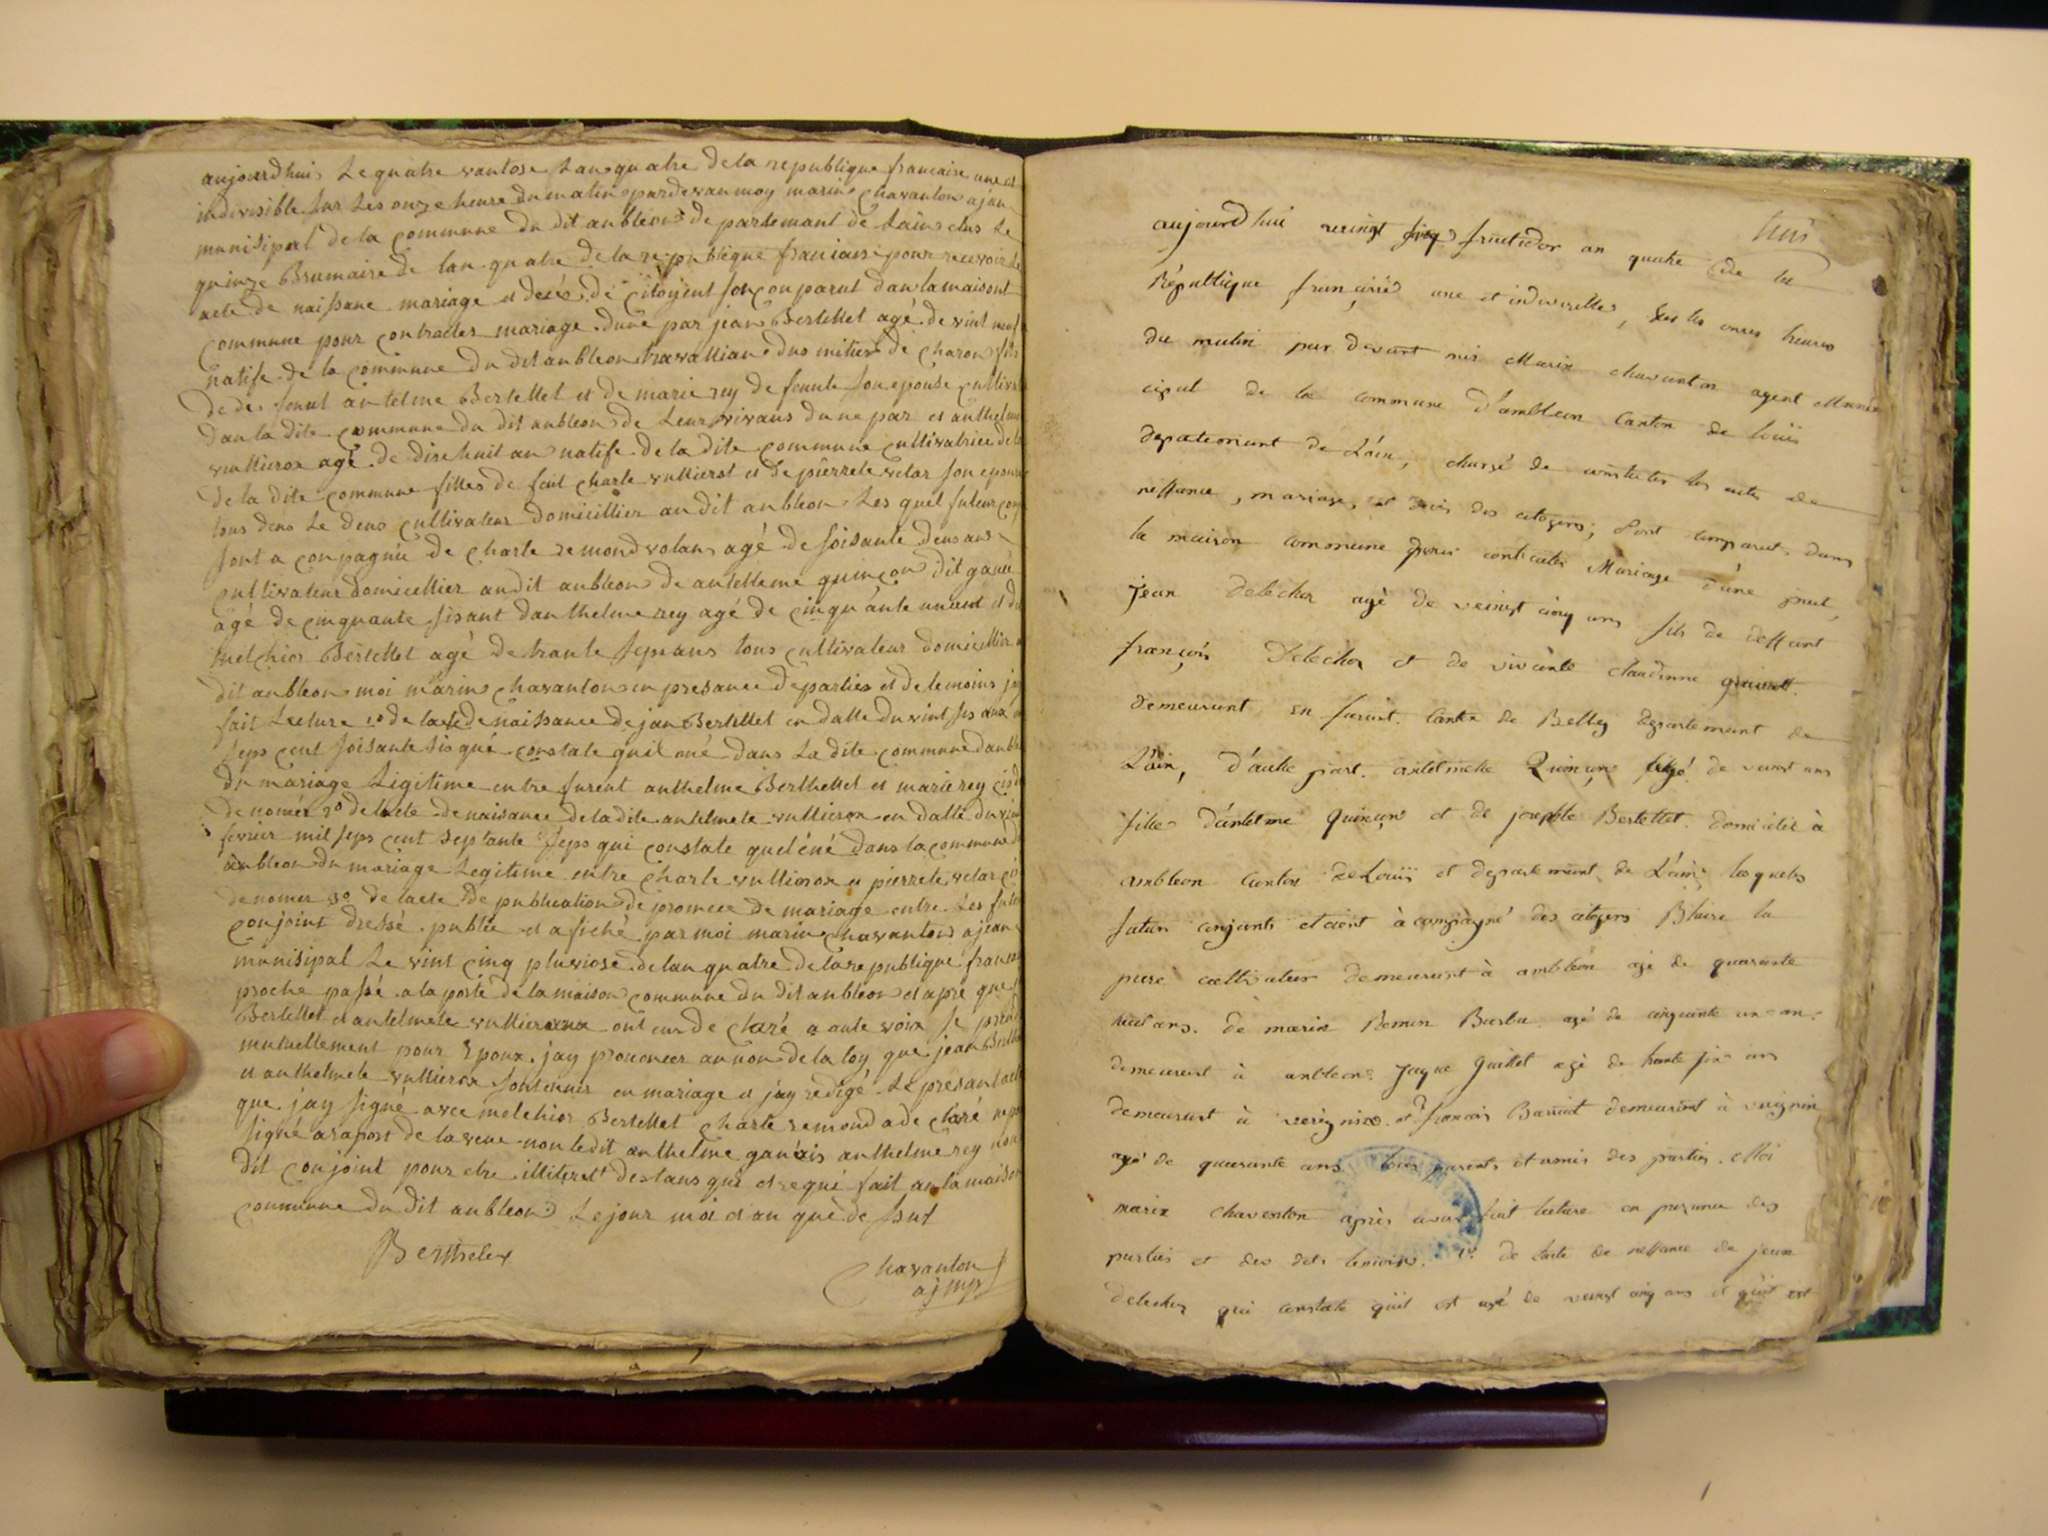 aujourdhui Le quatre vantose Lan quatre de la republique francaise une et
indivisible sur Les onze heure du matin pardevan moy marin chavanton ajan
munisipal de la commune du dit anbleon departemant de Lain elus Le
quinze Brumaire de lan quatre de la republique franciaise pour recevoir Le
acte de naissane mariage et desés de citoyent son conparut dan la maisont
commune pour contracter mariage dune par jean Bertellet agé de vint neuf
natife de la commune du dit anbleon travallian dus mitier de charon fils
de defeunt antelme Bertellet et de marie rey defeunte son epouse cultiva
dan la dite commune du dit anbleon de Leur vivans dune par et anthelme
vullierox agé de dixe huit an natife de la dite commune cultivatrice de la
de la dite commune filles de fait charle vullierot et de pierrete velar son epouse
tous deus Le deus cultivateur domicillier au dit anbleon Les quel futeur con
sont a conpagnié de charle remond volan agé de soisante deus ans
cultivateur domicillier au dit anbleon de antellme quinçon dit ganée
agé de cinquante sis ant danthelme rey agé de cinquante un ant et de
melchior Bertellet agé de trante seps ans tous cultivateur domicillier au
dit anbleon moi marin chavanton en presance de parties et de temoins jay
fait Lecture 1o de lacte de naissance de jan Bertellet en datte du vint sis
seps cent soisante sis qui constate quil e né dans La dite commune danble
du mariage Legitime entre furent anthelme Berthellet et marie rey ci d
denomér 2o de lacte de naisance de la dite antelmete vullierox en datte du
fevrier mil seps cent septante seps qui constate quel é né dans la commune
anbleon du mariage Legitime entre charle vullierox et pierrete velar ci
denomer 3o de lacte de publication de promese de mariage entre Les futeu
conjoint dressé publié et afiché par moi marin chavanton ajean
munisipal Le vint cinq pluviose de lan quatre de la republique franse
proche passé a la porte de la maison commune du dit anbleon et apre que
Bertellet et antelmete vullieroxe ont eux de claré a aute voix se prend
mutuellement pour Epoux jay prononcer au non de la loy que jean Berthe
et anthelmete vullierox sont eunis en mariage et jay redigé Le present acte
que jay signé avec melchior Bertellet charle remond a de claré ne pa
signé a raport de la veue non le dit anthelme ganéis anthelme rey non
dit conjoint pour etre illiteret de stans qui et requi fait an la maison
commune du dit anbleon Le jour moi et an que de sut
Berthelet
chavanton
aj mpl
huis
aujourdhui veingt sinq fructidor an quatre de la
République françoise une et indivisible, sur les onzes heures
du matin par devant moi Marin chavanton agent Munis
cipal de la commune d'ambleon canton de louis
departement de L'ain, chargé de constater les actes de
nessance, mariage, et deces des citoyens; sont comparuts dans
la maison commune pour contracter Mariage d'une part,
jean Delechor agé de veingt cinq ans fils de deffunt
françois Delechor et de vivante claudinne
demeurant en Canton de Belley departement de
L'ain, d'autre part antelmette Quinçon agé de veingt ans
fille d'antelme quinçon et de josephte Bertellet domicilié à
ambleon canton de Louis et departement de L'ain, lesquels
futur conjoints etoient à compagné des citoyens Blaise la
pere cultivateur demeurant à ambléon agé de quarante
huit ans. de marin Remon Barbu agé de cinquante un ans
demeurant à ambleon Jaque Guillet agé de trante six ans
demeurant à et francois demeurant à
agé de quarante ans tous parents et amis des parties. Moi
marin chavanton après avoir fait lecture en presance des
parties et des dits temoins. 1o de l'acte de nessance de jean
delechor qui constate quil est agé de veingt cinq ans et quil est